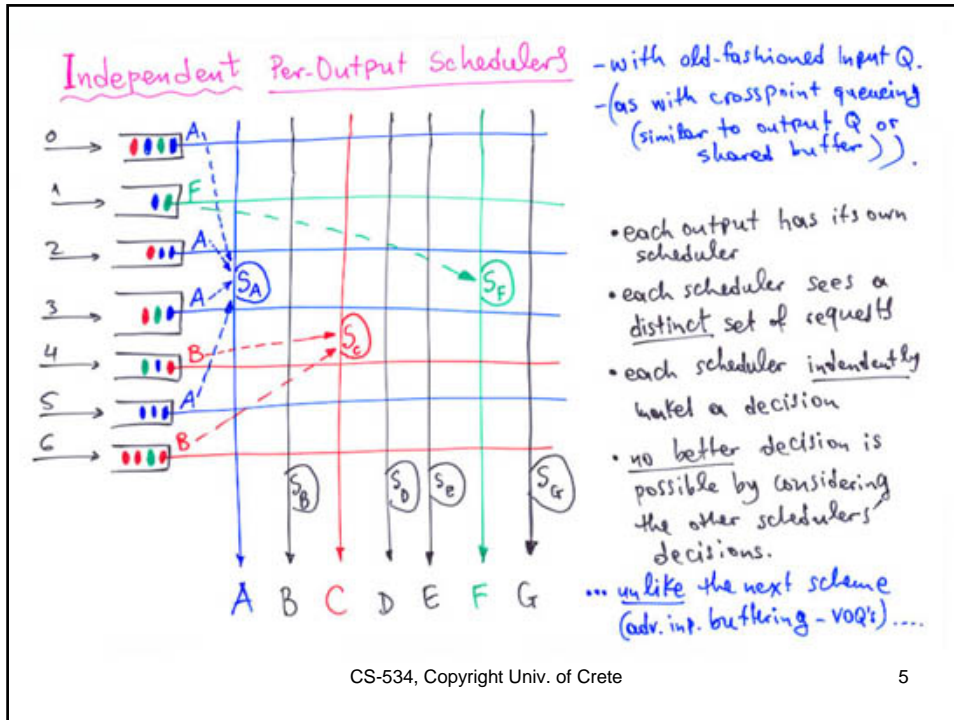 Independent Per-Output Schedulers
- with old-fashioned Input Q.
- (as with crosspoint queueing
(similar to output Q or
shared buffer)).
0
A
1
F
2
A
3
A
4
B
5
A
6
B
S_A
S_F
S_c
S_B
S_D
S_E
S_G
A B C D E F G
• each output has its own
scheduler
• each scheduler sees a
distinct set of requests
• each scheduler indendently
makes a decision
• no better decision is
possible by considering
the other schedulers'
decisions.
... unlike the next scheme
(adv. inp. buffering - VOQ's) ....
CS-534, Copyright Univ. of Crete
5